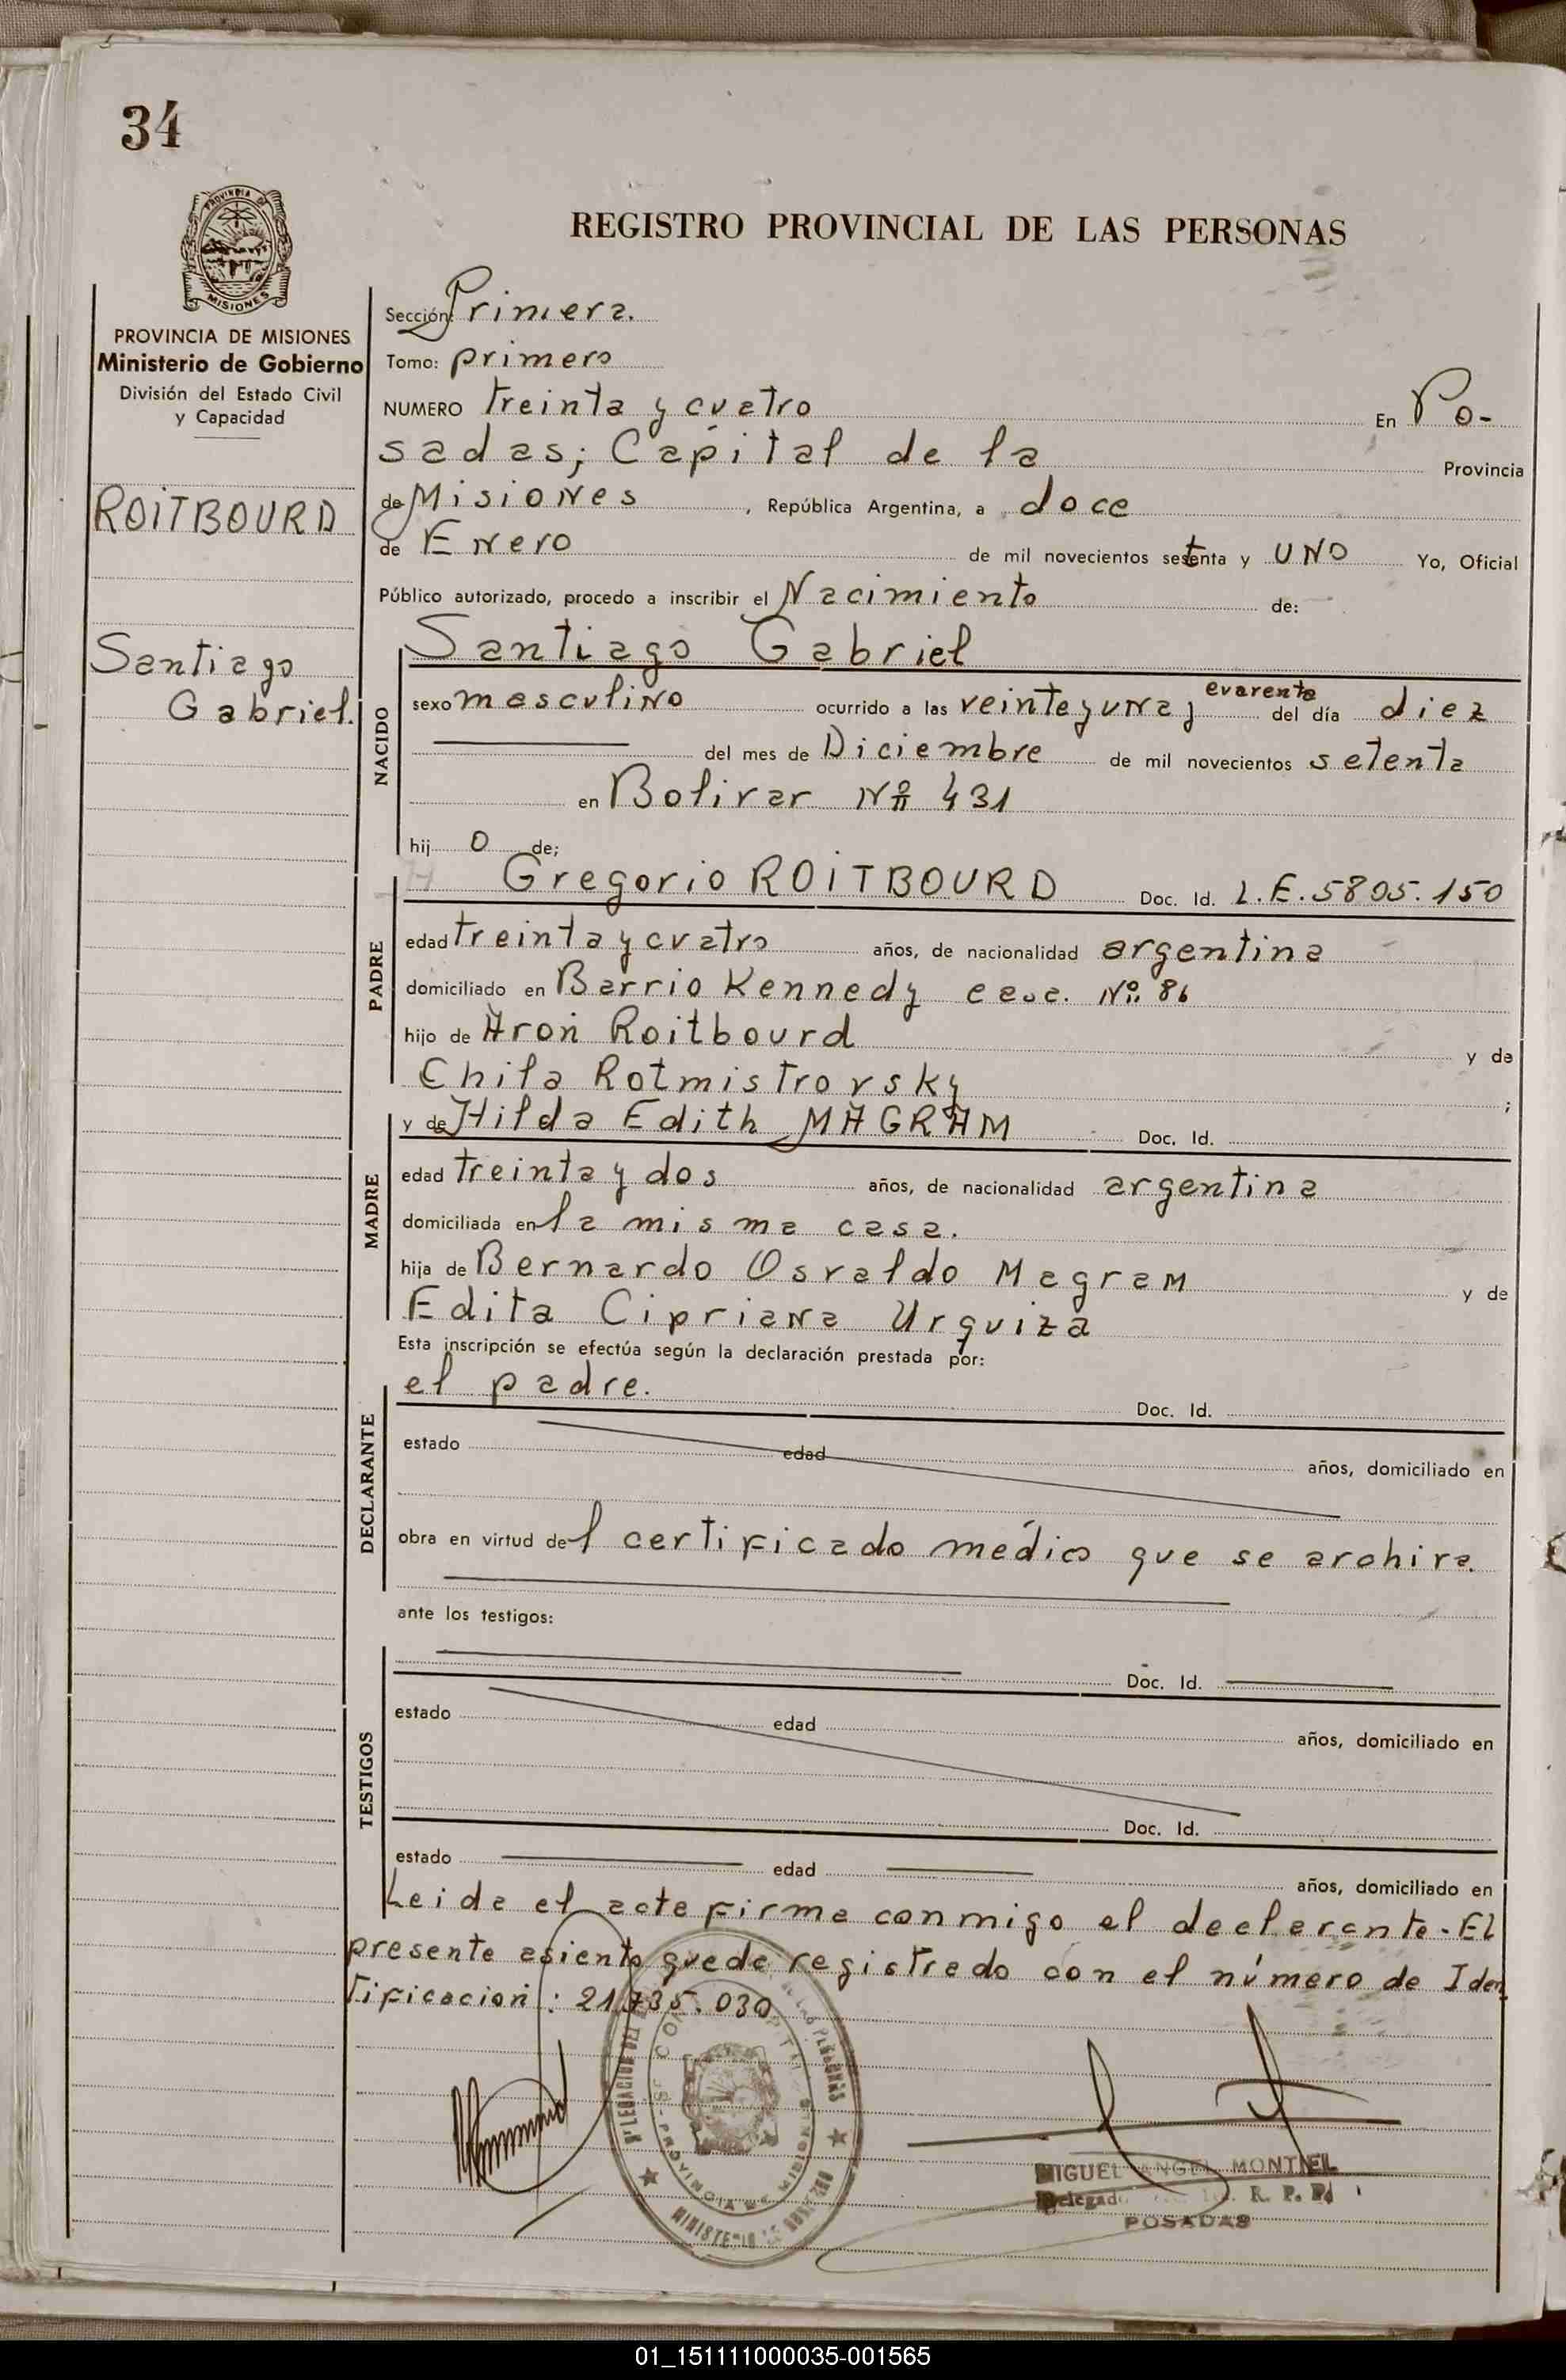 34
PROVINCIA DE
MISIONES
REGISTRO PROVINCIAL DE LAS PERSONAS
PROVINCIA DE MISIONES
Ministerio de Gobierno
División del Estado Civil
y Capacidad
ROITBOURD
Santiago
Gabriel.
Sección: Primera.
Tomo: primero
NUMERO treinta y cuatro En Po-
sadas; Capital de la Provincia
de Misiones, República Argentina, a doce
de Enero de mil novecientos setenta y uno Yo, Oficial
Público autorizado, procedo a inscribir el Nacimiento de:
NACIDO
Santiago Gabriel
sexo masculino ocurrido a las veinte y una y cuarenta del día diez
del mes de Diciembre de mil novecientos setenta
en Bolivar Nº 431
hij o de;
PADRE
Gregorio ROITBOURD Doc. Id. L.E. 5805.150
edad treinta y cuatro años, de nacionalidad argentina
domiciliado en Barrio Kennedy casa. Nº 86
hijo de Aron Roitbourd y de
Chila Rotmistrovsky ;
MADRE
y de Hilda Edith MAGRAM Doc. Id.
edad treinta y dos años, de nacionalidad argentina
domiciliada en la misma casa.
hija de Bernardo Osvaldo Magram y de
Edita Cipriana Urquiza
Esta inscripción se efectúa según la declaración prestada por:
DECLARANTE
el padre. Doc. Id.
estado edad años, domiciliado en
obra en virtud del certificado médico que se archiva.
ante los testigos:
TESTIGOS
Doc. Id.
estado edad años, domiciliado en
Doc. Id.
estado edad años, domiciliado en
Leida el acta firma conmigo el declarante. El
presente asiento queda registrado con el número de Iden
tificacion: 21.735.030
MIGUEL ANGEL MONTIEL
R. P. P.
POSADAS
PROVINCIA DE MISIONES
01_151111000035-001565